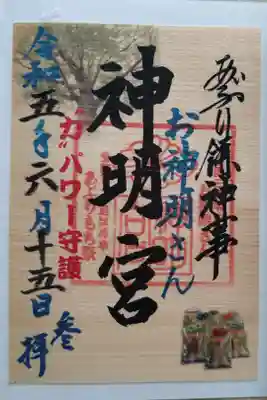 あぶり餅神事
お神明さん
神明宮
“力”パワー守護
令和五年六月十五日
参拝